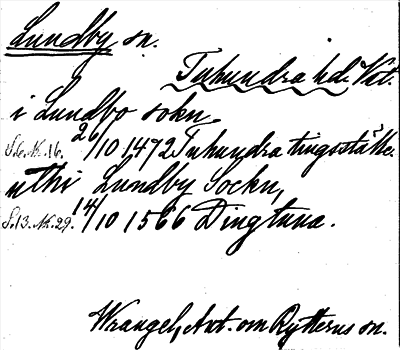 Lundby sn.
Tuhundra hd. Vst.
i Lundbo sokn
S.6. Nr. 16. 26/10 1472 Tuhundra tingsställe.
uthi Lundby Sockn,
S.13. Nr. 29. 14/10 1566 Dingtuna.
Wrangel, Ant. om Rytterns sn.